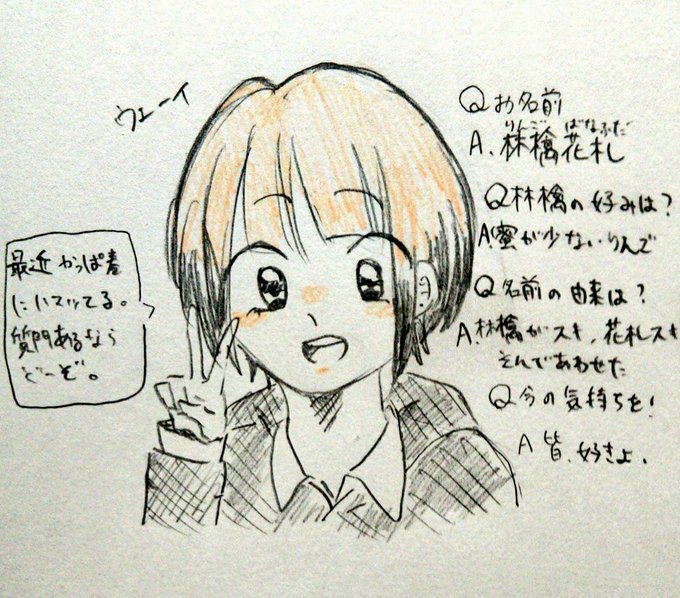 ウェーイ
最近かっぱ巻
にハマッてる。
質問あるなら
どーぞ。
Qお名前
りんご ばなふだ
A、林檎花札
Q林檎の好みは?
A蜜が少ないりんご
Q名前の由来は?
A、林檎がスキ、花札スキ
そんであわせた
Q今の気持ちを!
A皆、好きよ、